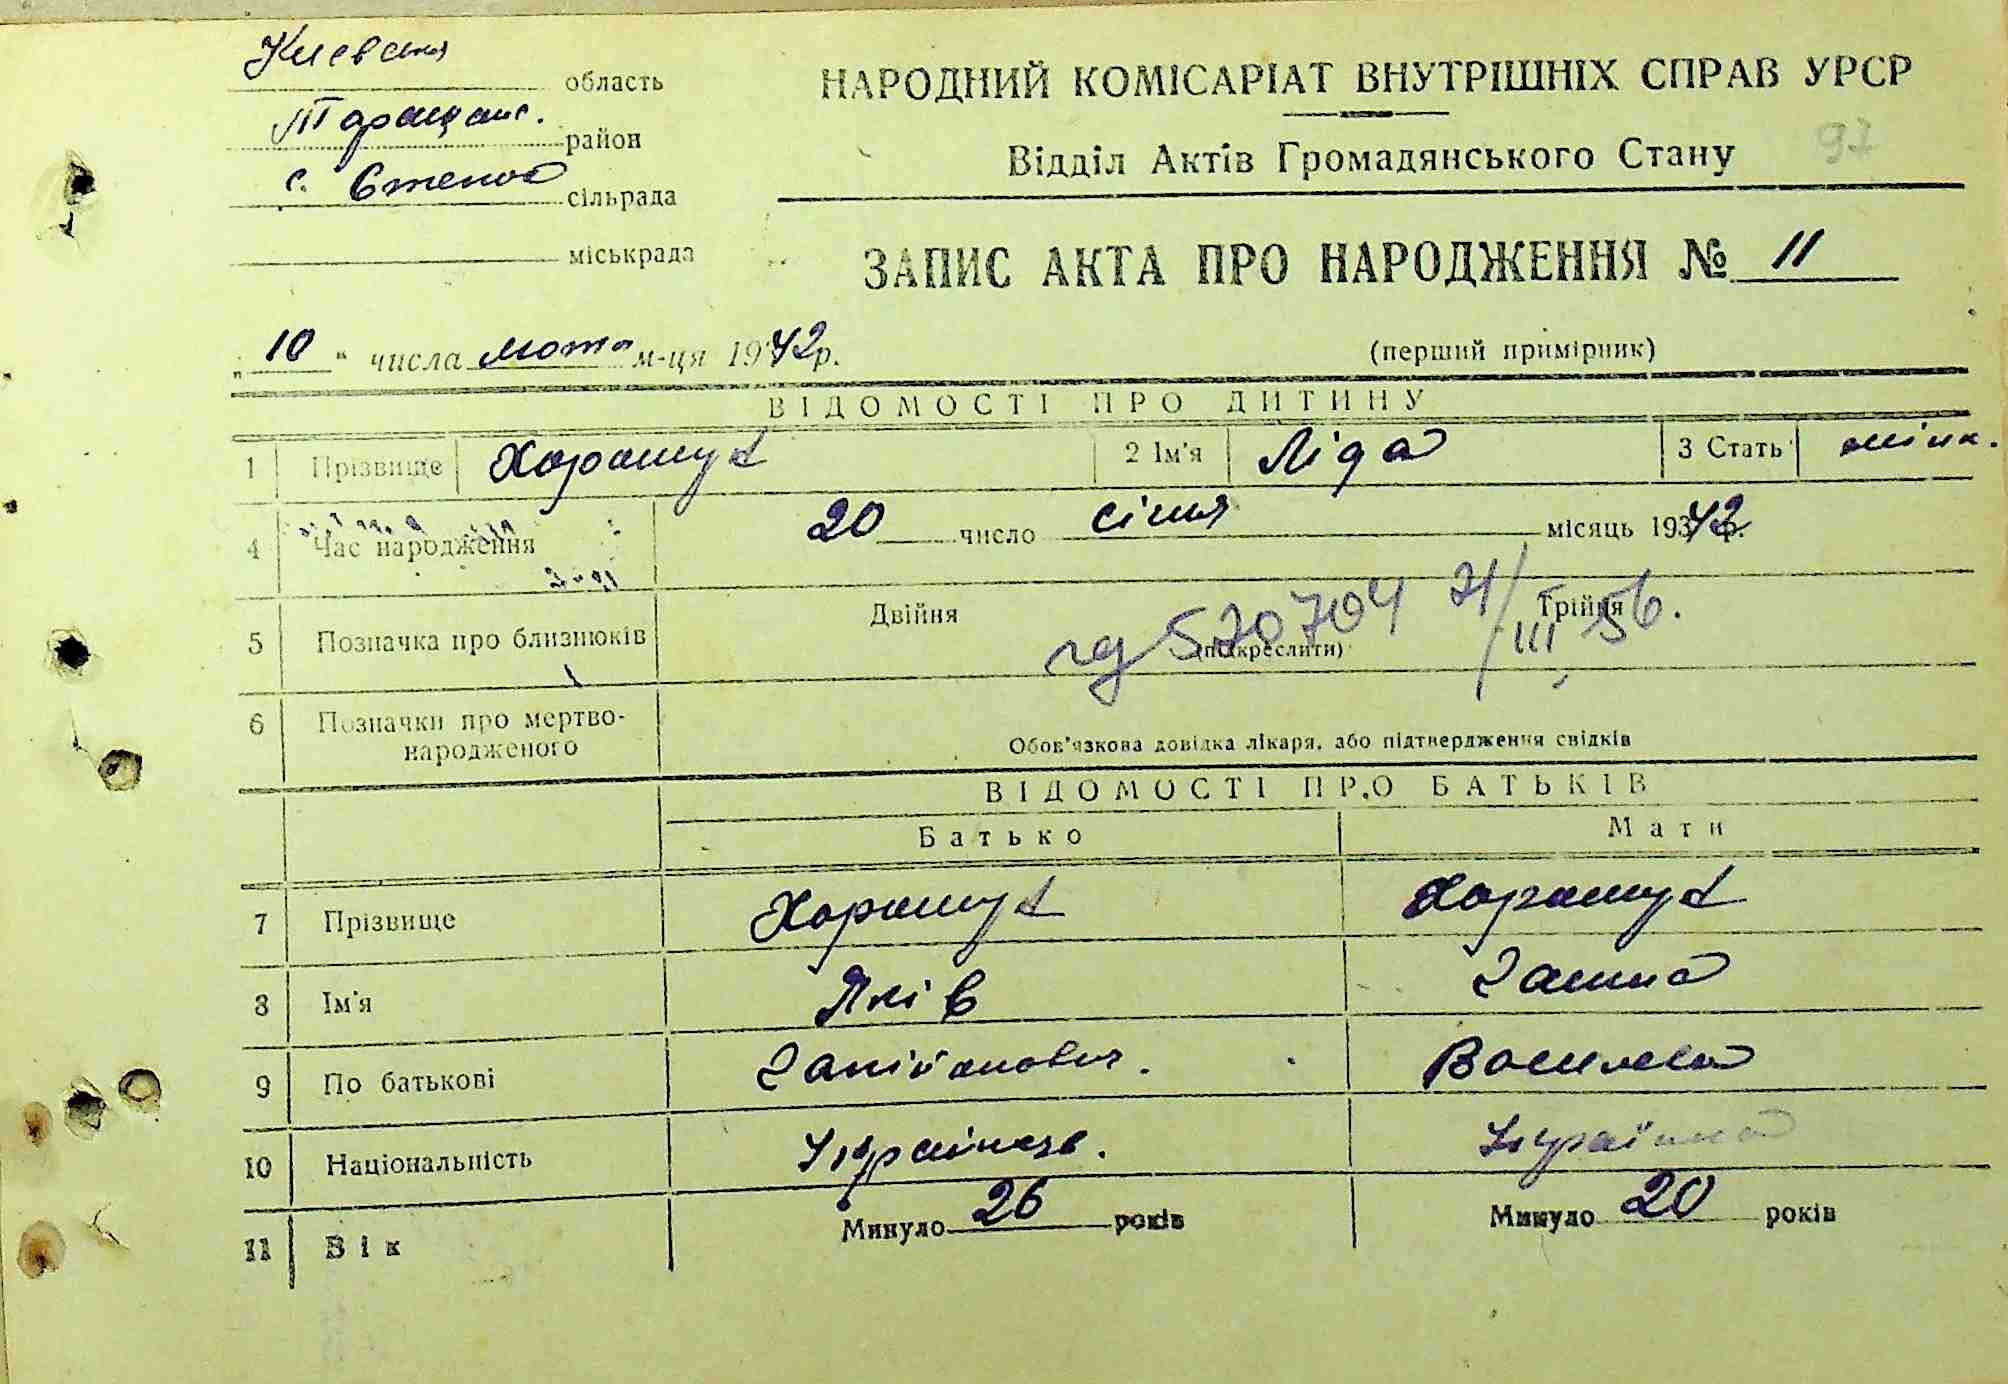 Киевська область
Таращанс. район
с. Степок сільрада
міськрада
НАРОДНИЙ КОМІСАРІАТ ВНУТРІШНІХ СПРАВ УРСР
Відділ Актів Громадянського Стану 97
ЗАПИС АКТА ПРО НАРОДЖЕННЯ № 11
„ 10 “ числа люто м-ця 1942р.
(перший примірник)
ВІДОМОСТІ ПРО ДИТИНУ
1 Прізвище Харашук 2 Ім'я Ліда 3 Стать жінк.
4 Час народження 20 число січня місяць 193 42 р.
5 Позначка про близнюків Двійня Трійня
(підкреслити)
570704 21/III 56.
6 Позначки про мертво-
народженого
Обов'язкова довідка лікаря, або підтвердження свідків
ВІДОМОСТІ ПРО БАТЬКІВ
Батько Мати
7 Прізвище Харашук Харашук
8 Ім'я Яків Ганна
9 По батькові Василев
10 Національність Українец. Українка
11 Вік Минуло 26 років Минуло 20 років